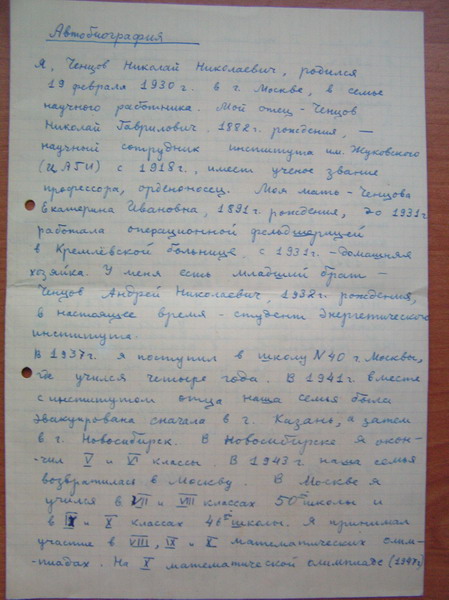 Автобиография
Я, Ченцов Николай Николаевич, родился
19 февраля 1930 г. в г. Москве, в семье
научного работника. Мой отец - Ченцов
Николай Гаврилович, 1882 г. рождения, —
научный сотрудник института им. Жуковского
(ЦАГИ) с 1918 г., имеет ученое звание
профессора, орденоносец. Моя мать - Ченцова
Екатерина Ивановна, 1891 г. рождения, до 1931 г.
работала операционной фельдшерицей
в Кремлёвской больнице, с 1931 г. - домашняя
хозяйка. У меня есть младший брат -
Ченцов Андрей Николаевич, 1932 г. рождения,
в настоящее время - студент Энергетического
института.
В 1937 г. я поступил в школу N 40 г. Москвы,
где учился четыре года. В 1941 г. вместе
с институтом отца наша семья была
эвакуирована сначала в г. Казань, а затем
в г. Новосибирск. В Новосибирске я окон-
-чил V и VI классы. В 1943 г. наша семья
возвратилась в Москву. В Москве я
учился в VII и VIII классах 50й школы и
в IX и X классах 46й школы. Я принимал
участие в VIII, IX и X математических олим-
-пиадах. На X математической олимпиаде (1947 г.)